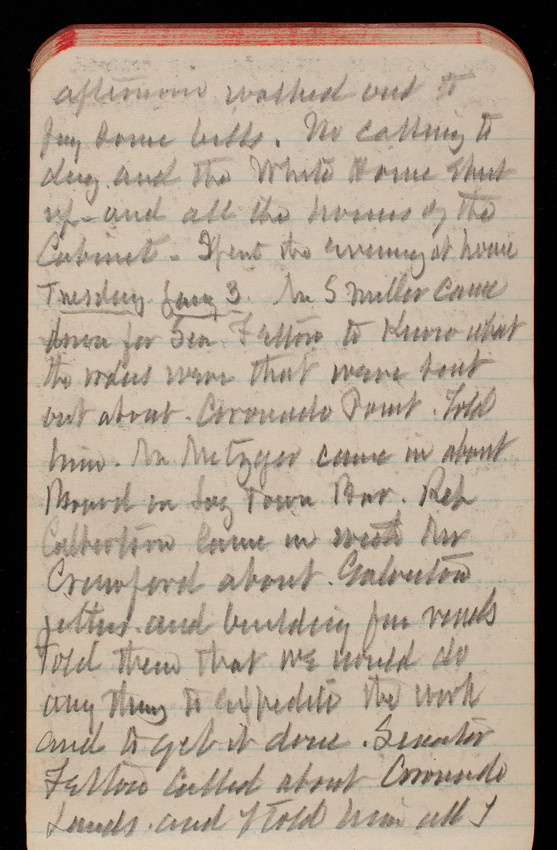 afternoon walked out to
pay some bills. No calling to
day and the White House shut
up - and all the houses of the
Cabinet - Spent the evening at home
Tuesday Jany 3. Mr S Miller came
down for Sen Felton to know what
the orders were that were sent
out about Coronado Point. Told
him. Mr Metzger came in about
Board in Town Bar. Rep
Culberson came in with Mr
Crawford about Galveston
jetties and building fur vessels
Told them that we would do
any thing to expedite the work
and to get it done. Senator
Felton called about Coronado
Lands. and I told him all I